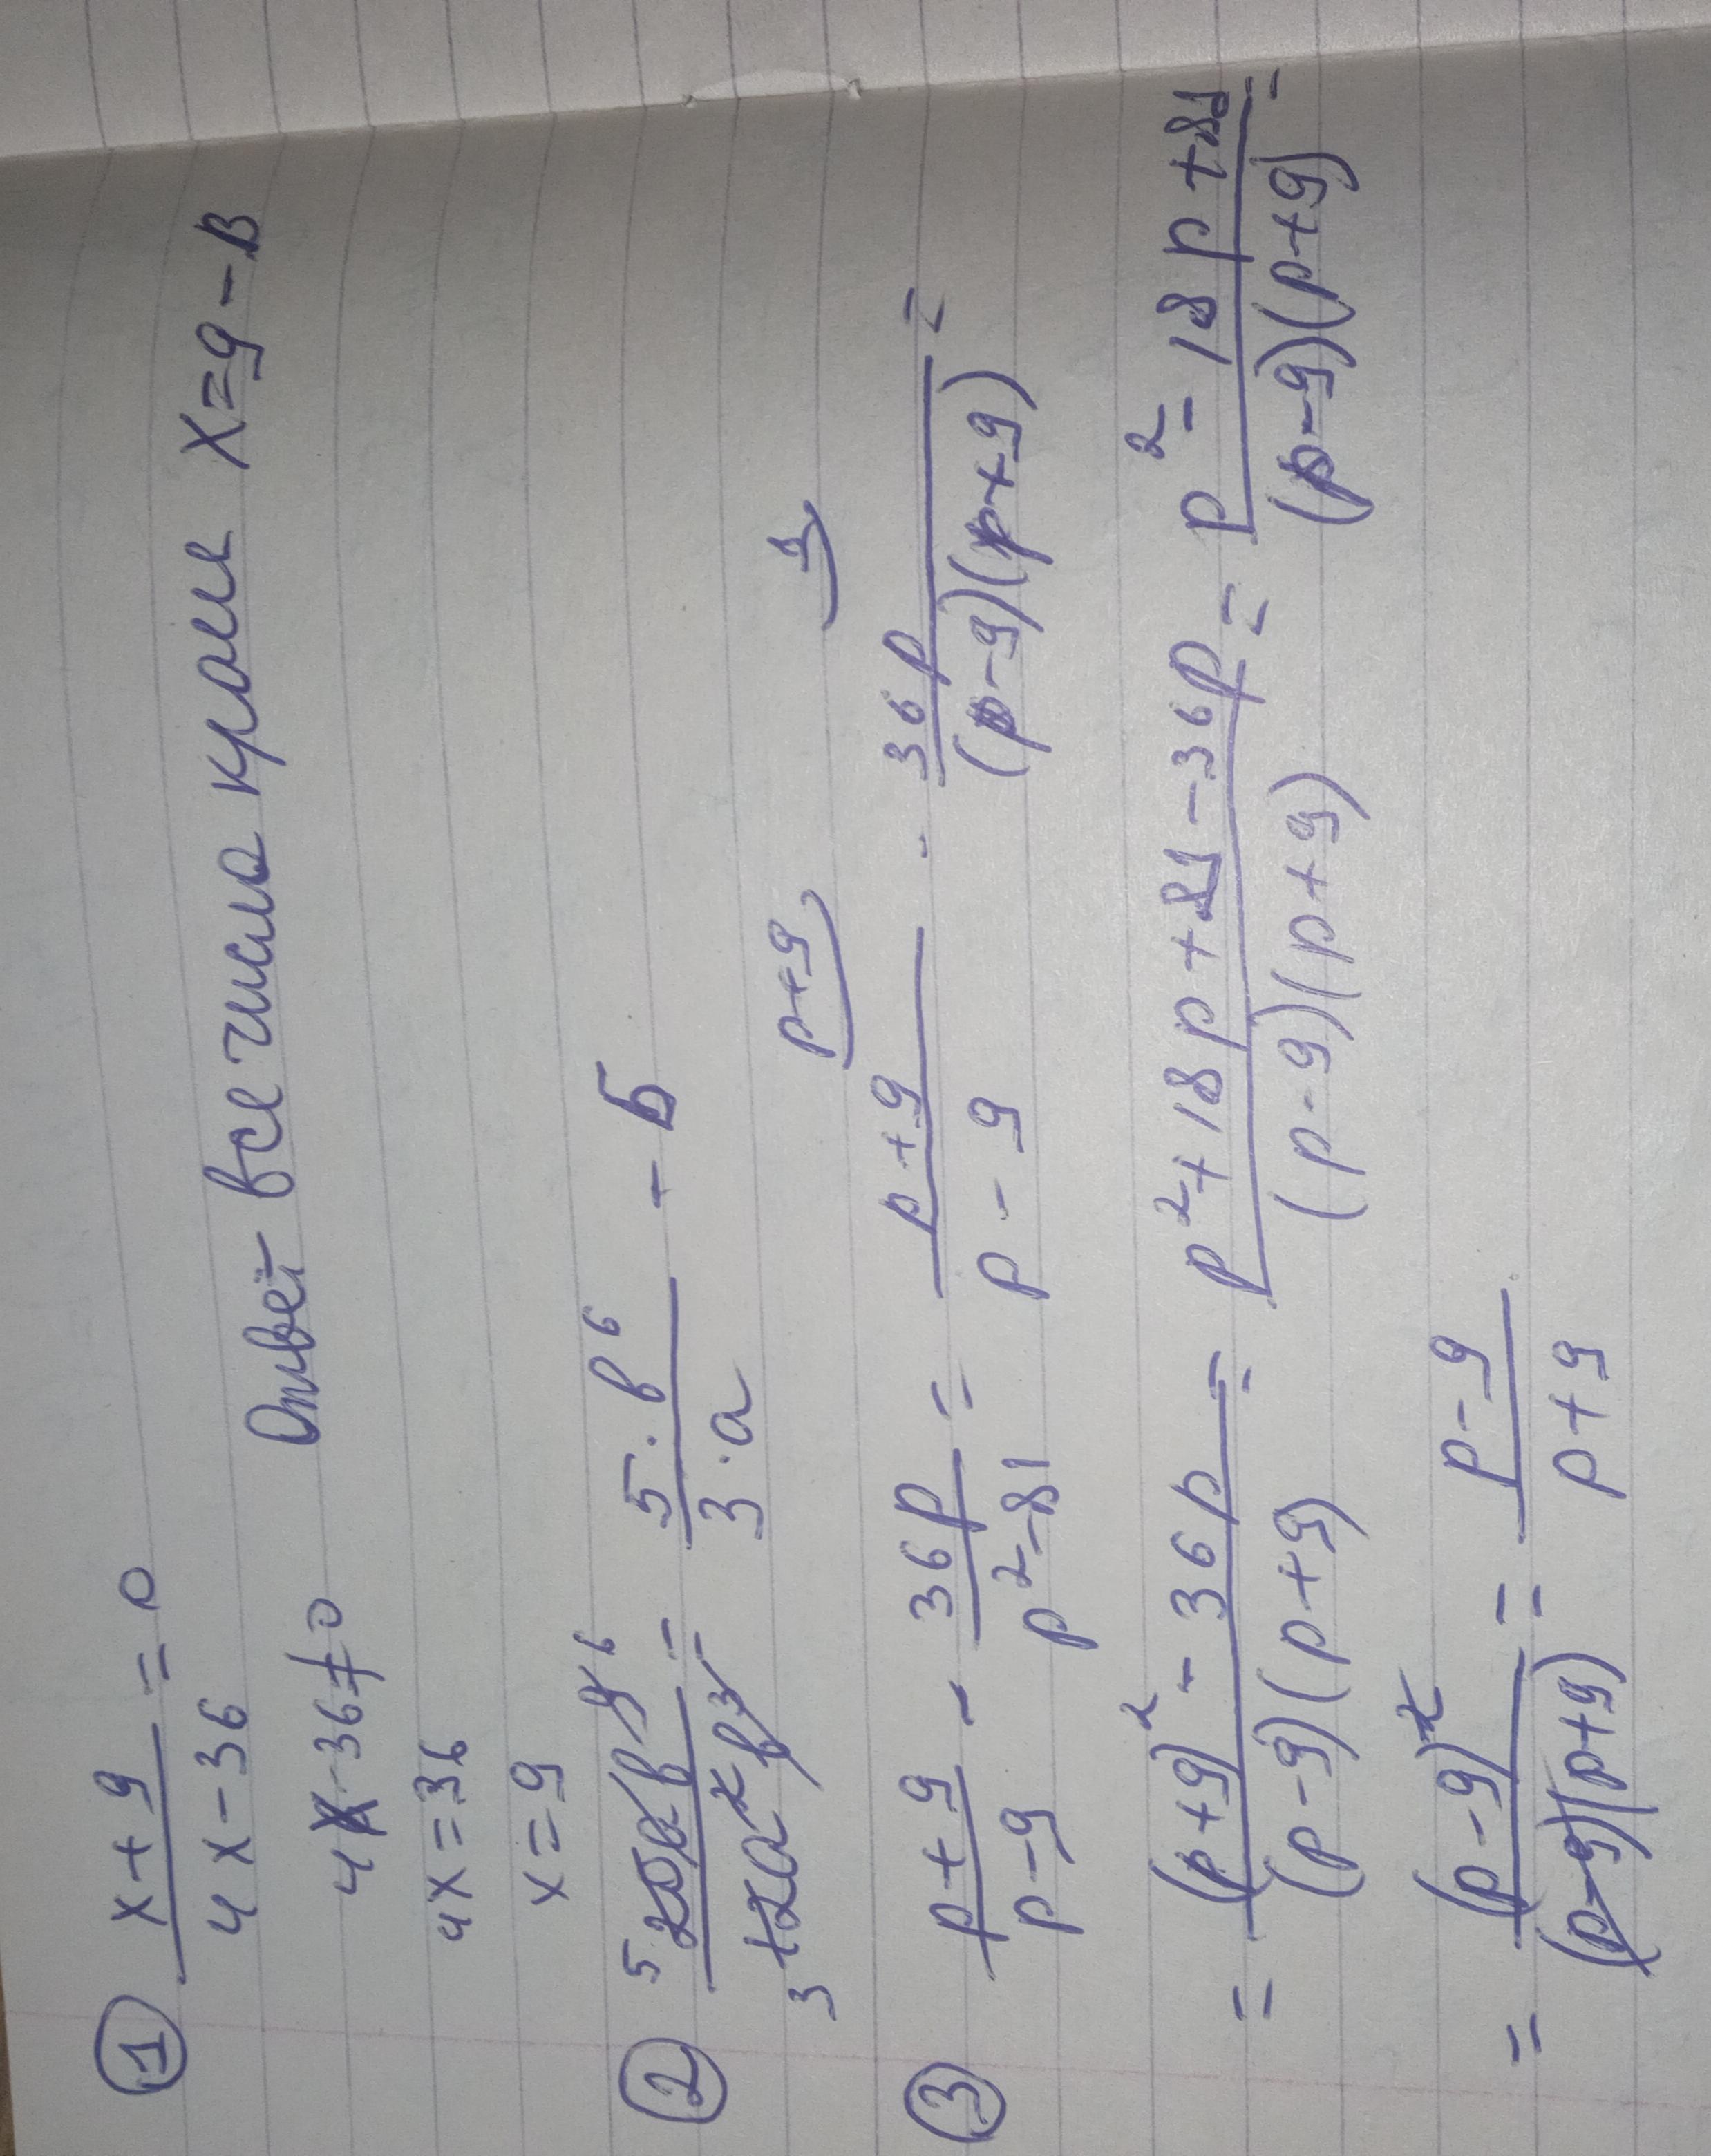 ① (x+9)/(4x-36) = 0
Ответ - все числа кроме x=9 - В
4x-36≠0
4x=36
x=9
② (20ab⁹)/(12a²b³) = (5·b⁶)/(3·a) - Б
5 6
3
③ (p+9)/(p-9) - 36p/(p²-81) = (p+9)/(p-9) - 36p/((p-9)(p+9)) =
p+9 1
= ((p+9)²-36p)/((p-9)(p+9)) = (p²+18p+81-36p)/((p-9)(p+9)) = (p²-18p+81)/((p-9)(p+9)) =
= (p-9)²/((p-9)(p+9)) = (p-9)/(p+9)